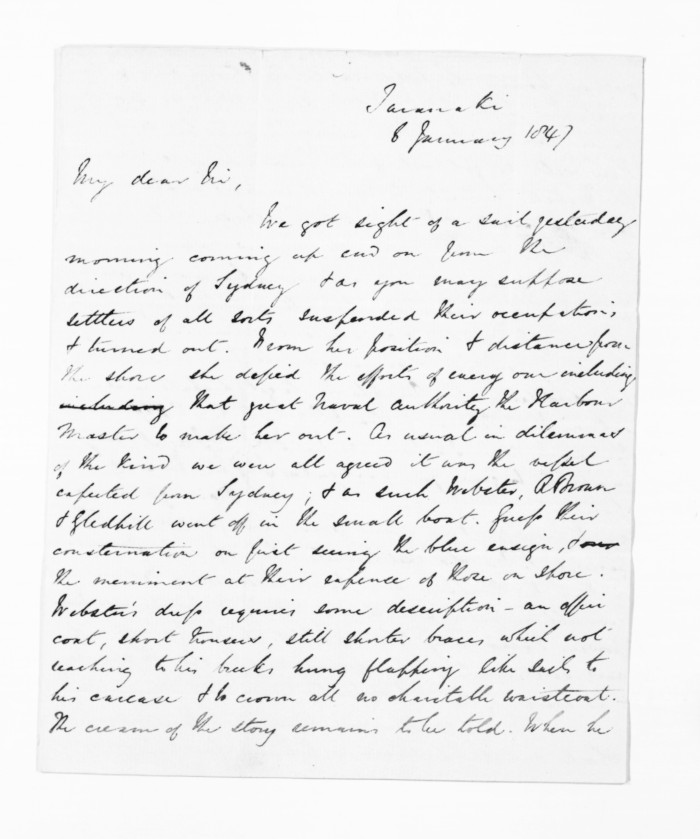 Taranaki
6 January 1847
My dear Sir,
We got sight of a sail yesterday
morning coming up end on from the
direction of Sydney & as you may suppose
settlers of all sorts suspended their occupations
& turned out. From her position & distance from
the shore she defied the efforts of every one including
including that great Naval authority the Harbour
Master to make her out. As usual in dilemmas
of the kind we were all agreed it was the vessel
expected from Sydney; & as such Webster, A Brown
& Gledhill went off in the small boat. Guess their
consternation on first seeing the blue ensign, &
the merriment at their expense of those on shore.
Webster's dress requires some description – an
coat, short trousers, still shorter braces which not
reaching to his breeks hung flapping like sails to
his carcase & to crown all no charitable waistcoat.
The cream of the story remains to be told. When he